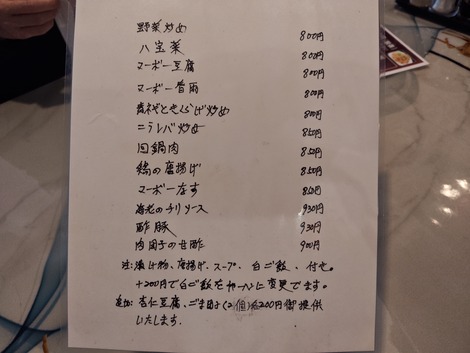 野菜炒め 800円
八宝菜 800円
マーボー豆腐 800円
マーボー春雨 800円
青ネギときくらげ炒め 800円
ニラレバ炒め 850円
回鍋肉 850円
鶏の唐揚げ 850円
マーボーなす 850円
海老のチリソース 930円
酢豚 930円
肉団子の甘酢 900円
注:漬け物、唐揚げ、スープ、白ご飯、付き。
+200円で白ご飯を に変更できます。
追加:杏仁豆腐、ごま団子(2個)各200円御提供
いたします。